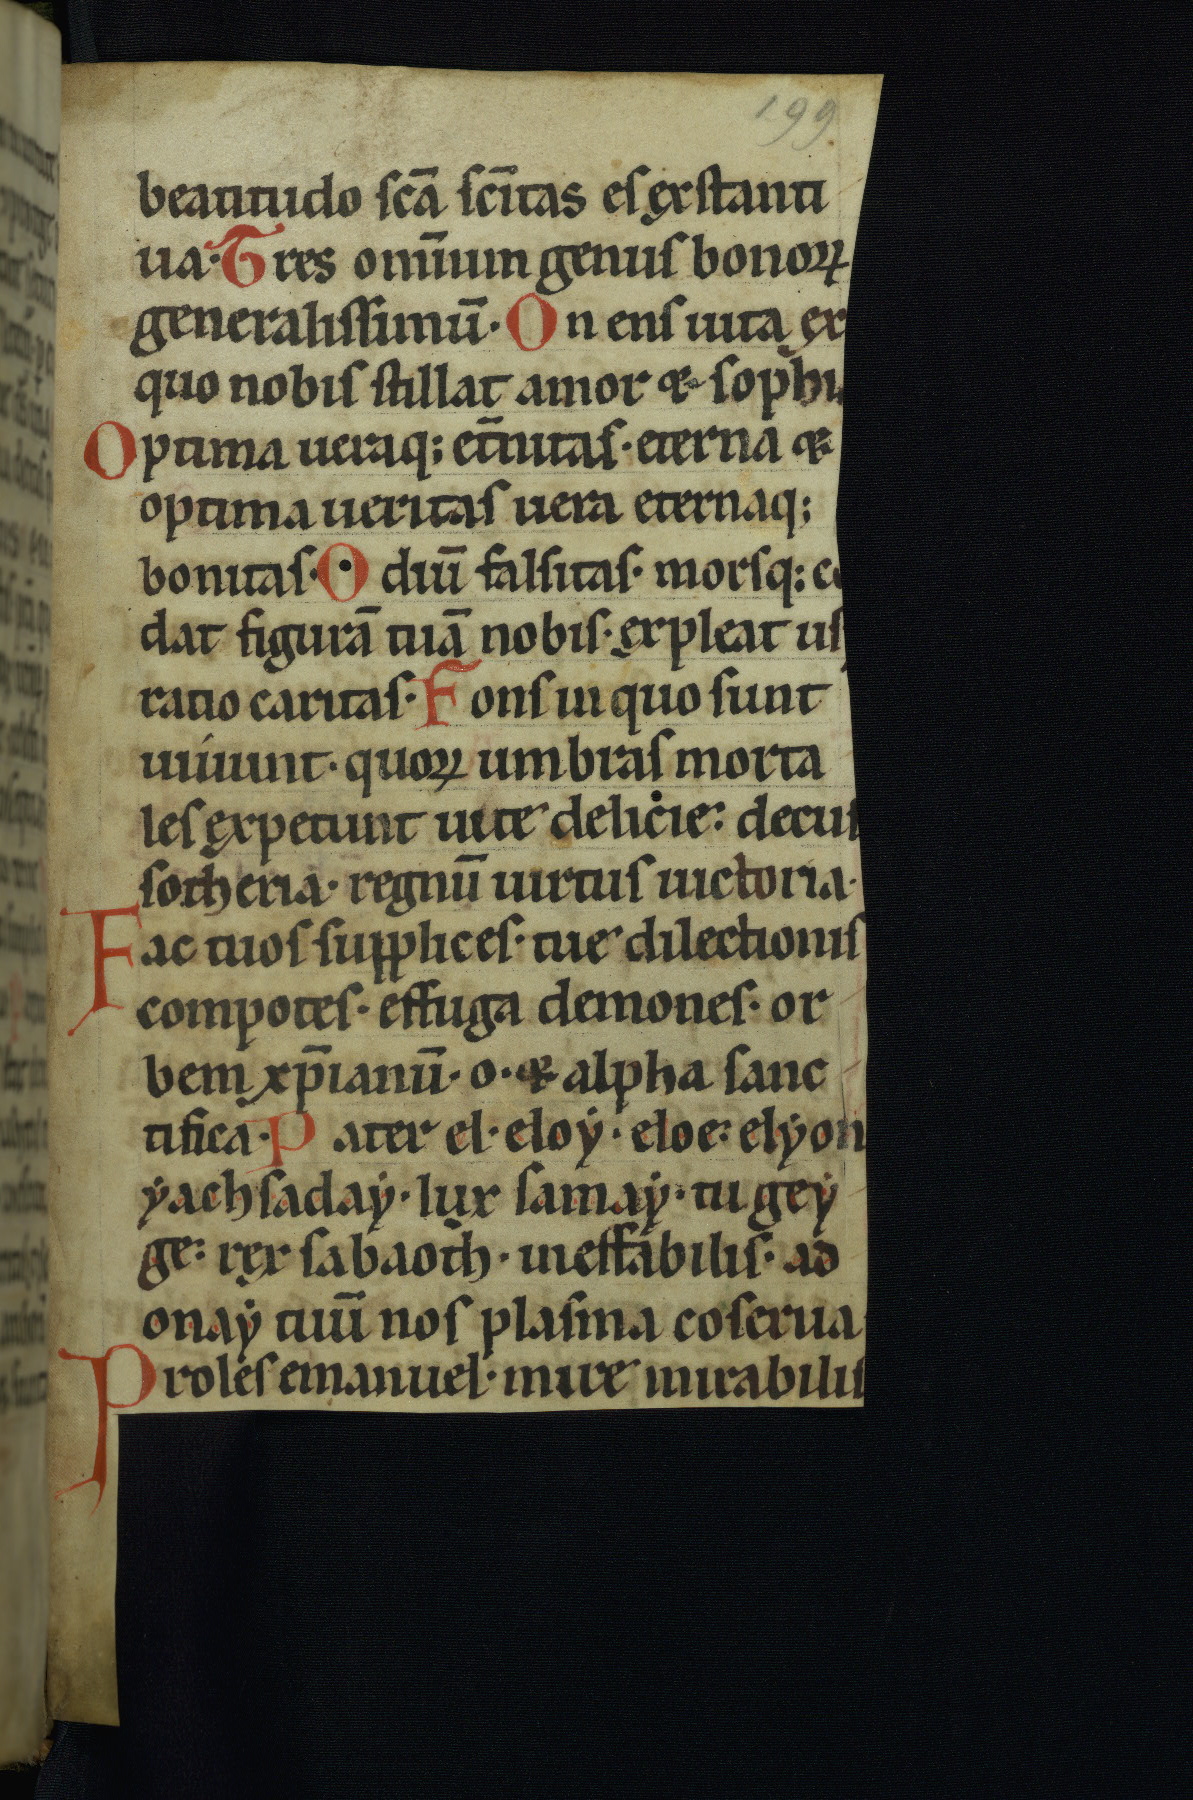 199
beatitudo ſcā ſcītas eſ exſtanti
ua· Tres omīum genuſ bonoꝝ
generaliſſimū· On enſ uita ex
quo nobiſ ſtillat amor & ſophi
Optima ueraq; etīutaſ· eterna &
optima ueritaſ uera eternaq;
bonitaſ· Odiū falſitaſ· morſq; c
dat figurā tuā nobiſ· expleat uſ
ratio caritaſ· Fonſ in quo ſunt
uiuunt· quoꝝ umbraſ morta
leſ expetunt uite delicie: decuſ
ſotheria· regnū uirtuſ uictoria·
Fac tuoſ ſupplices· tue dilectioniſ
compoteſ· effuga demoneſ· or
bem xp̄ianū· o· & alpha ſanc
tifica· Pater el· eloẏ· eloe: elẏon
ẏach ſadaẏ· lux ſamaẏ· tu geẏ
ge: rex ſabaoth· ineffabiliſ· ad
onaẏ tuū noſ plaſma coſerua
Proleſ emanuel· mire mirabiliſ